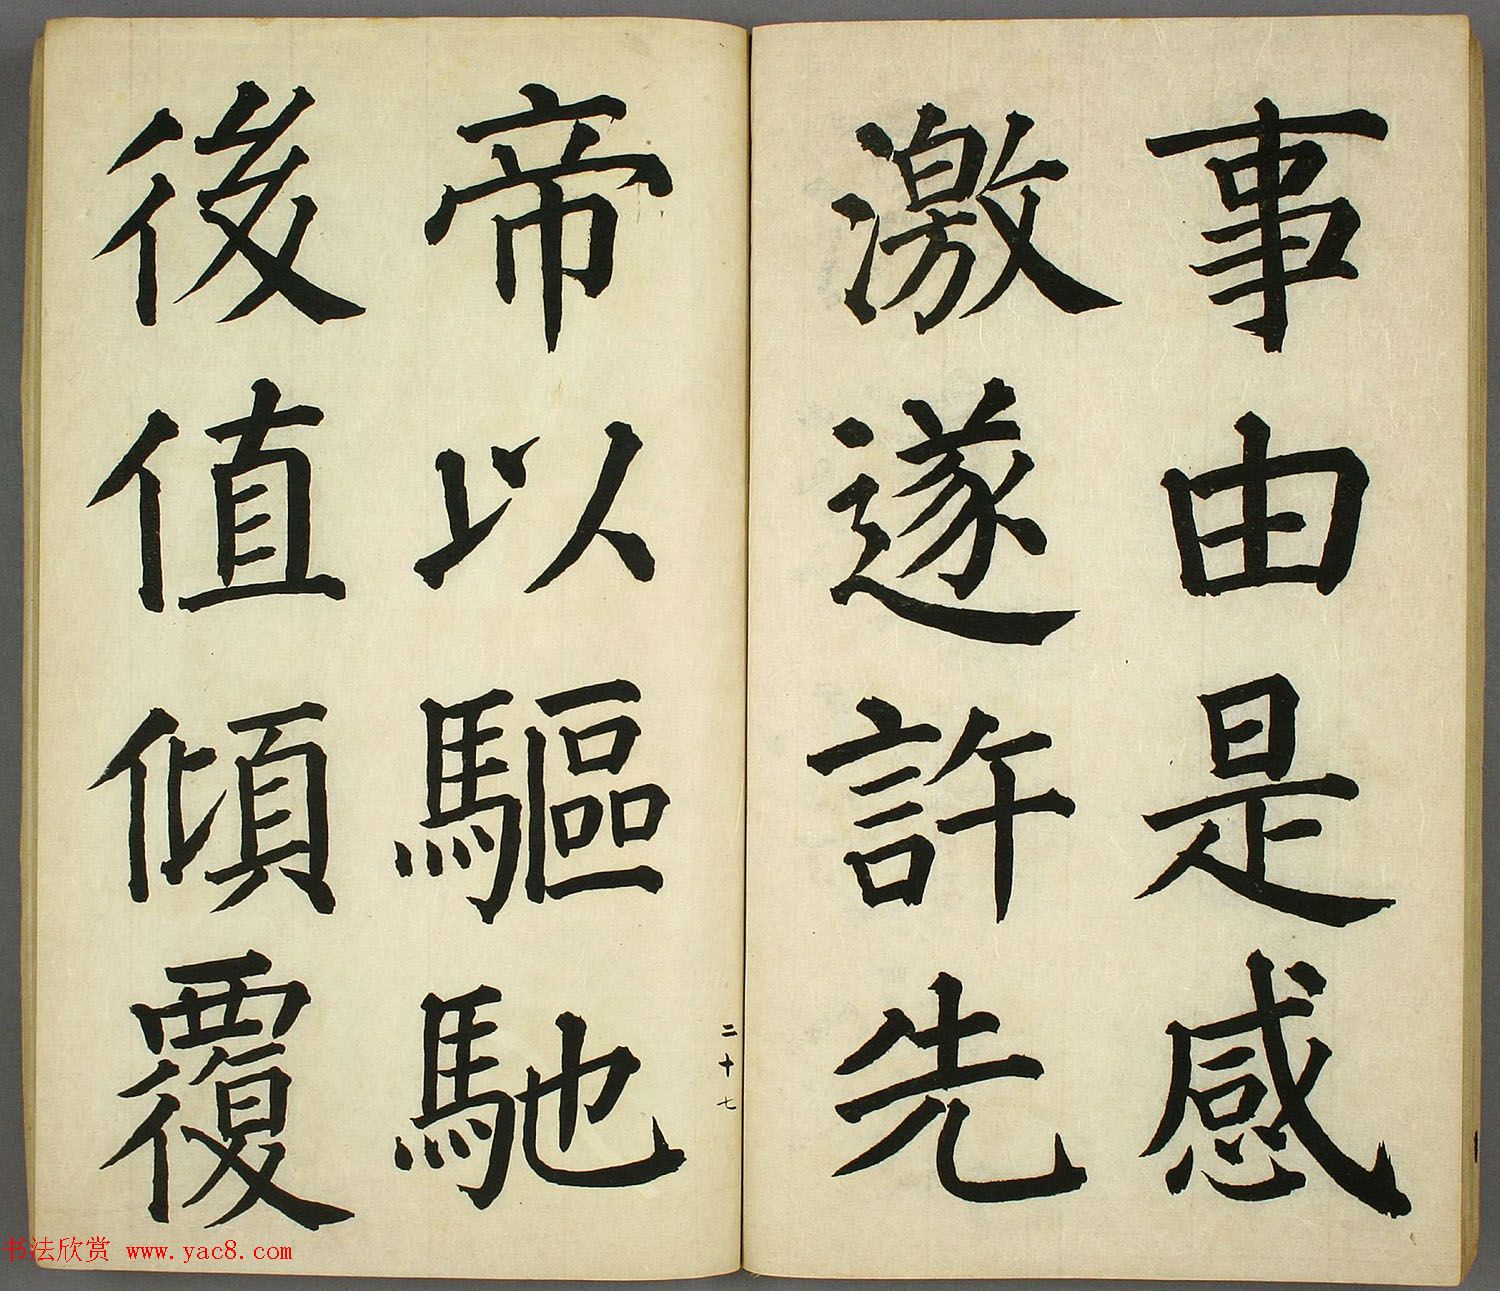 事由是感
激遂許先
帝以驅馳
後值傾覆
二十七
书法欣赏 www.yac8.com